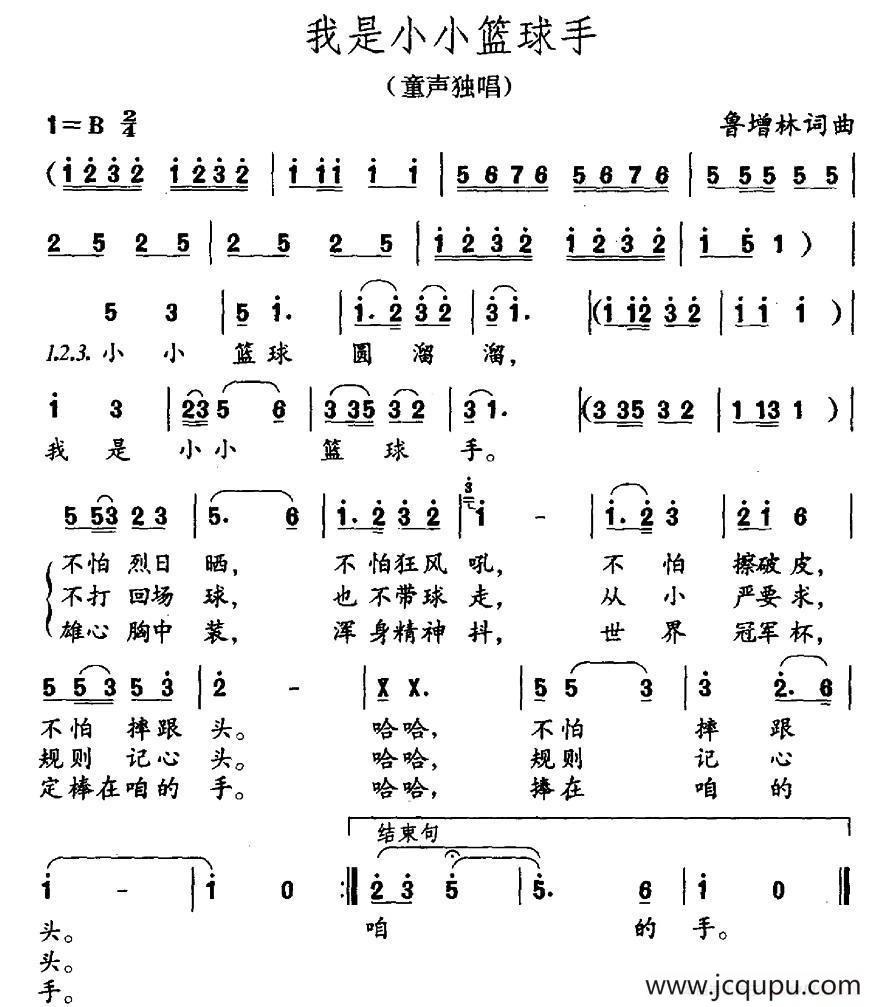 我是小小篮球手
（童声独唱）
1=B 2/4
鲁增林词曲
(1 2 3 2 1 2 3 2 | 1 1 1 1 1 | 5 6 7 6 5 6 7 6 | 5 5 5 5 5 |
2 5 2 5 | 2 5 2 5 | 1 2 3 2 1 2 3 2 | 1 5 1 ) |
5 3 | 5 1. | 1. 2 3 2 | 3 1. |(1 1 2 3 2 | 1 1 1 )|
1.2.3. 小 小 篮 球 圆 溜 溜,
1 3 | 2 3 5 6 | 3 3 5 3 2 | 3 1. |(3 3 5 3 2 | 1 1 3 1 )|
我 是 小 小 篮 球 手。
5 5 3 2 3 | 5. 6 | 1. 2 3 2 | 3 1 - | 1. 2 3 | 2 1 6 |
不怕 烈日 晒, 不 怕狂风 吼, 不 怕 擦破 皮,
不打 回场 球, 也 不带球 走, 从 小 严要 求,
雄心 胸中 装, 浑 身精神 抖, 世 界 冠军 杯,
5 5 3 5 3 | 2 - | X X. | 5 5 3 | 3 2. 6 |
不怕 摔跟 头。 哈哈, 不怕 摔 跟
规则 记心 头。 哈哈, 规则 记 心
定棒在咱的 手。 哈哈, 捧在 咱 的
结束句
1 - | 1 0 :‖ 2 3 5 | 5. 6 | 1 0 ‖
头。 咱 的 手。
头。
手。
www.jcqupu.com